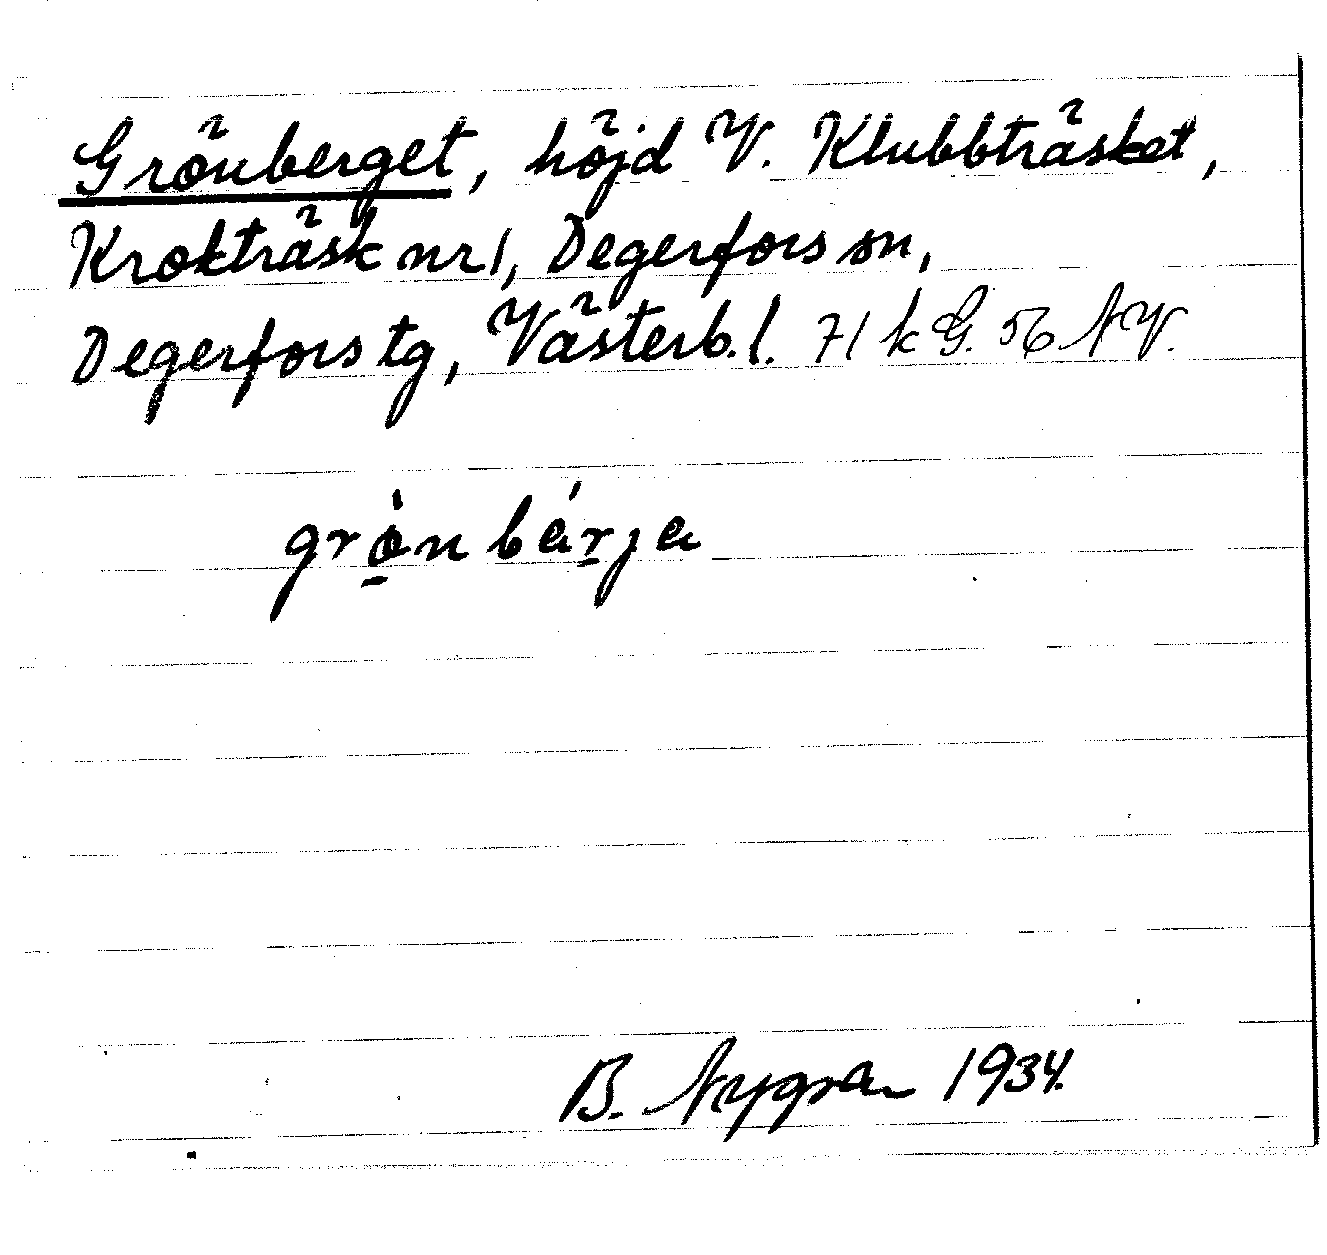 Grönberget, höjd V. Klubbträsket,
Krokträsk nr 1, Degerfors sn,
Degerfors tg, Västerb. l. 71 k G. 56 N V.
grò̠n bár̠ja
B. Nygren 1934.